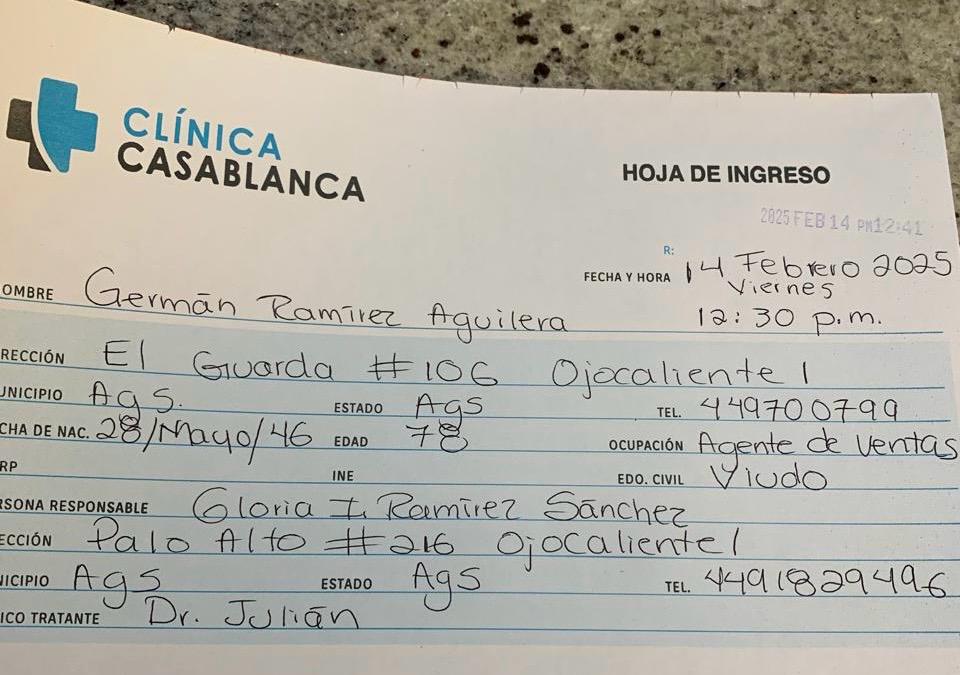 CLÍNICA
CASABLANCA
HOJA DE INGRESO
2025 FEB 14 PM 12:41
R:
FECHA Y HORA 14 Febrero 2025
Viernes
12:30 p.m.
OMBRE Germán Ramírez Aguilera
RECCIÓN El Guarda #106 Ojocaliente 1
UNICIPIO Ags. ESTADO Ags TEL. 449700799
CHA DE NAC. 28/Mayo/46 EDAD 78 OCUPACIÓN Agente de ventas
RP INE EDO. CIVIL Viudo
RSONA RESPONSABLE Gloria I. Ramírez Sánchez
ECCIÓN Palo Alto #216 Ojocaliente 1
NICIPIO Ags ESTADO Ags TEL. 4491829496
ICO TRATANTE Dr. Julián